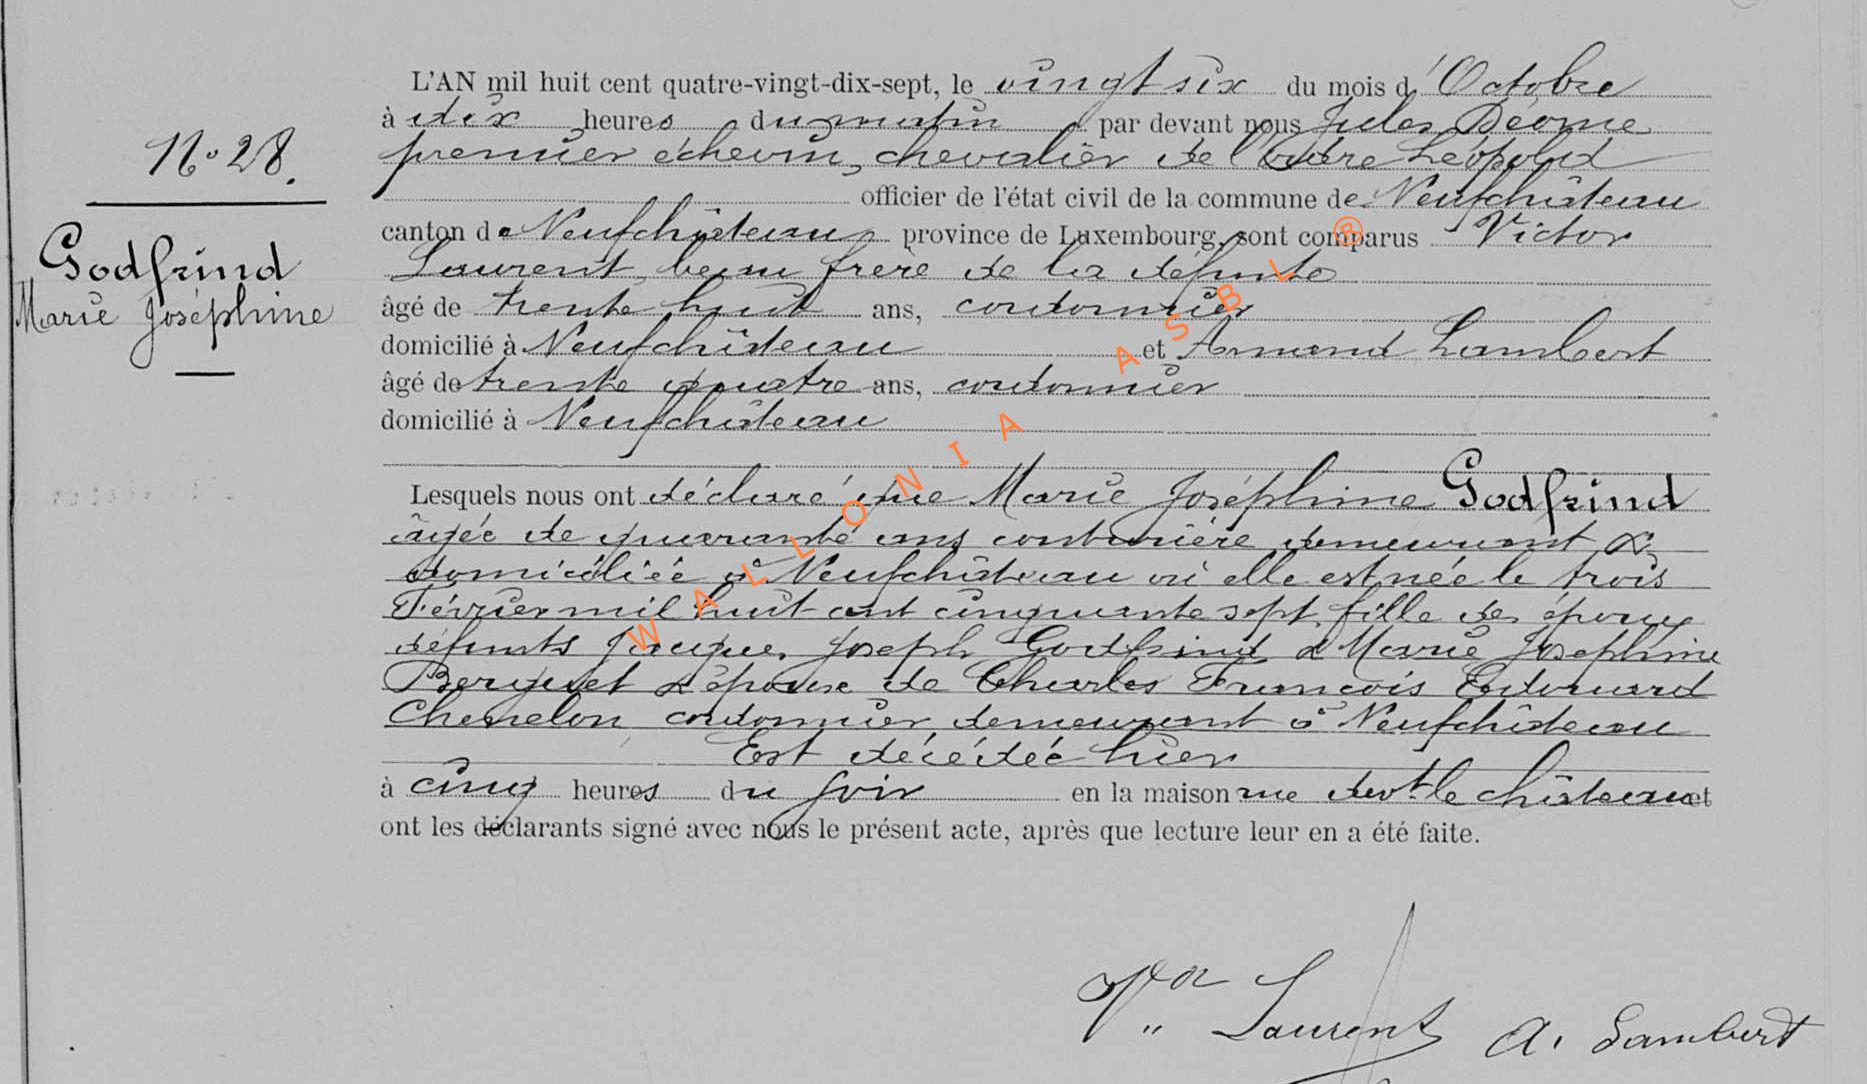 N° 28.
Godfrind
Marie Joséphine
L'AN mil huit cent quatre-vingt-dix-sept, le vingt six du mois d'Octobre
à dix heures du matin par devant nous Jules
premier échevin, chevalier de l'ordre Léopold
officier de l'état civil de la commune de Neufchâteau
canton de Neufchâteau province de Luxembourg, sont comparus Victor
Laurent, beau frère de la défunte
âgé de trente huit ans, cordonnier
domicilié à Neufchâteau et Armand Lambert
âgé de trente quatre ans, cordonnier
domicilié à Neufchâteau
Lesquels nous ont déclaré que Marie Joséphine Godfrind
âgée de quarante ans couturière demeurant &
domiciliée à Neufchâteau où elle est née le trois
Février mil huit cent cinquante sept, fille des époux
défunts Jacques Joseph Godfrind & Marie Josephine
Berquet & épouse de Charles François Edouard
Chenelon, cordonnier demeurant à Neufchâteau
Est décédée hier
à cinq heures du soir en la maison rue devt le château et
ont les déclarants signé avec nous le présent acte, après que lecture leur en a été faite.
Vor Laurent A. Lambert
WALLONIA ASBL ®